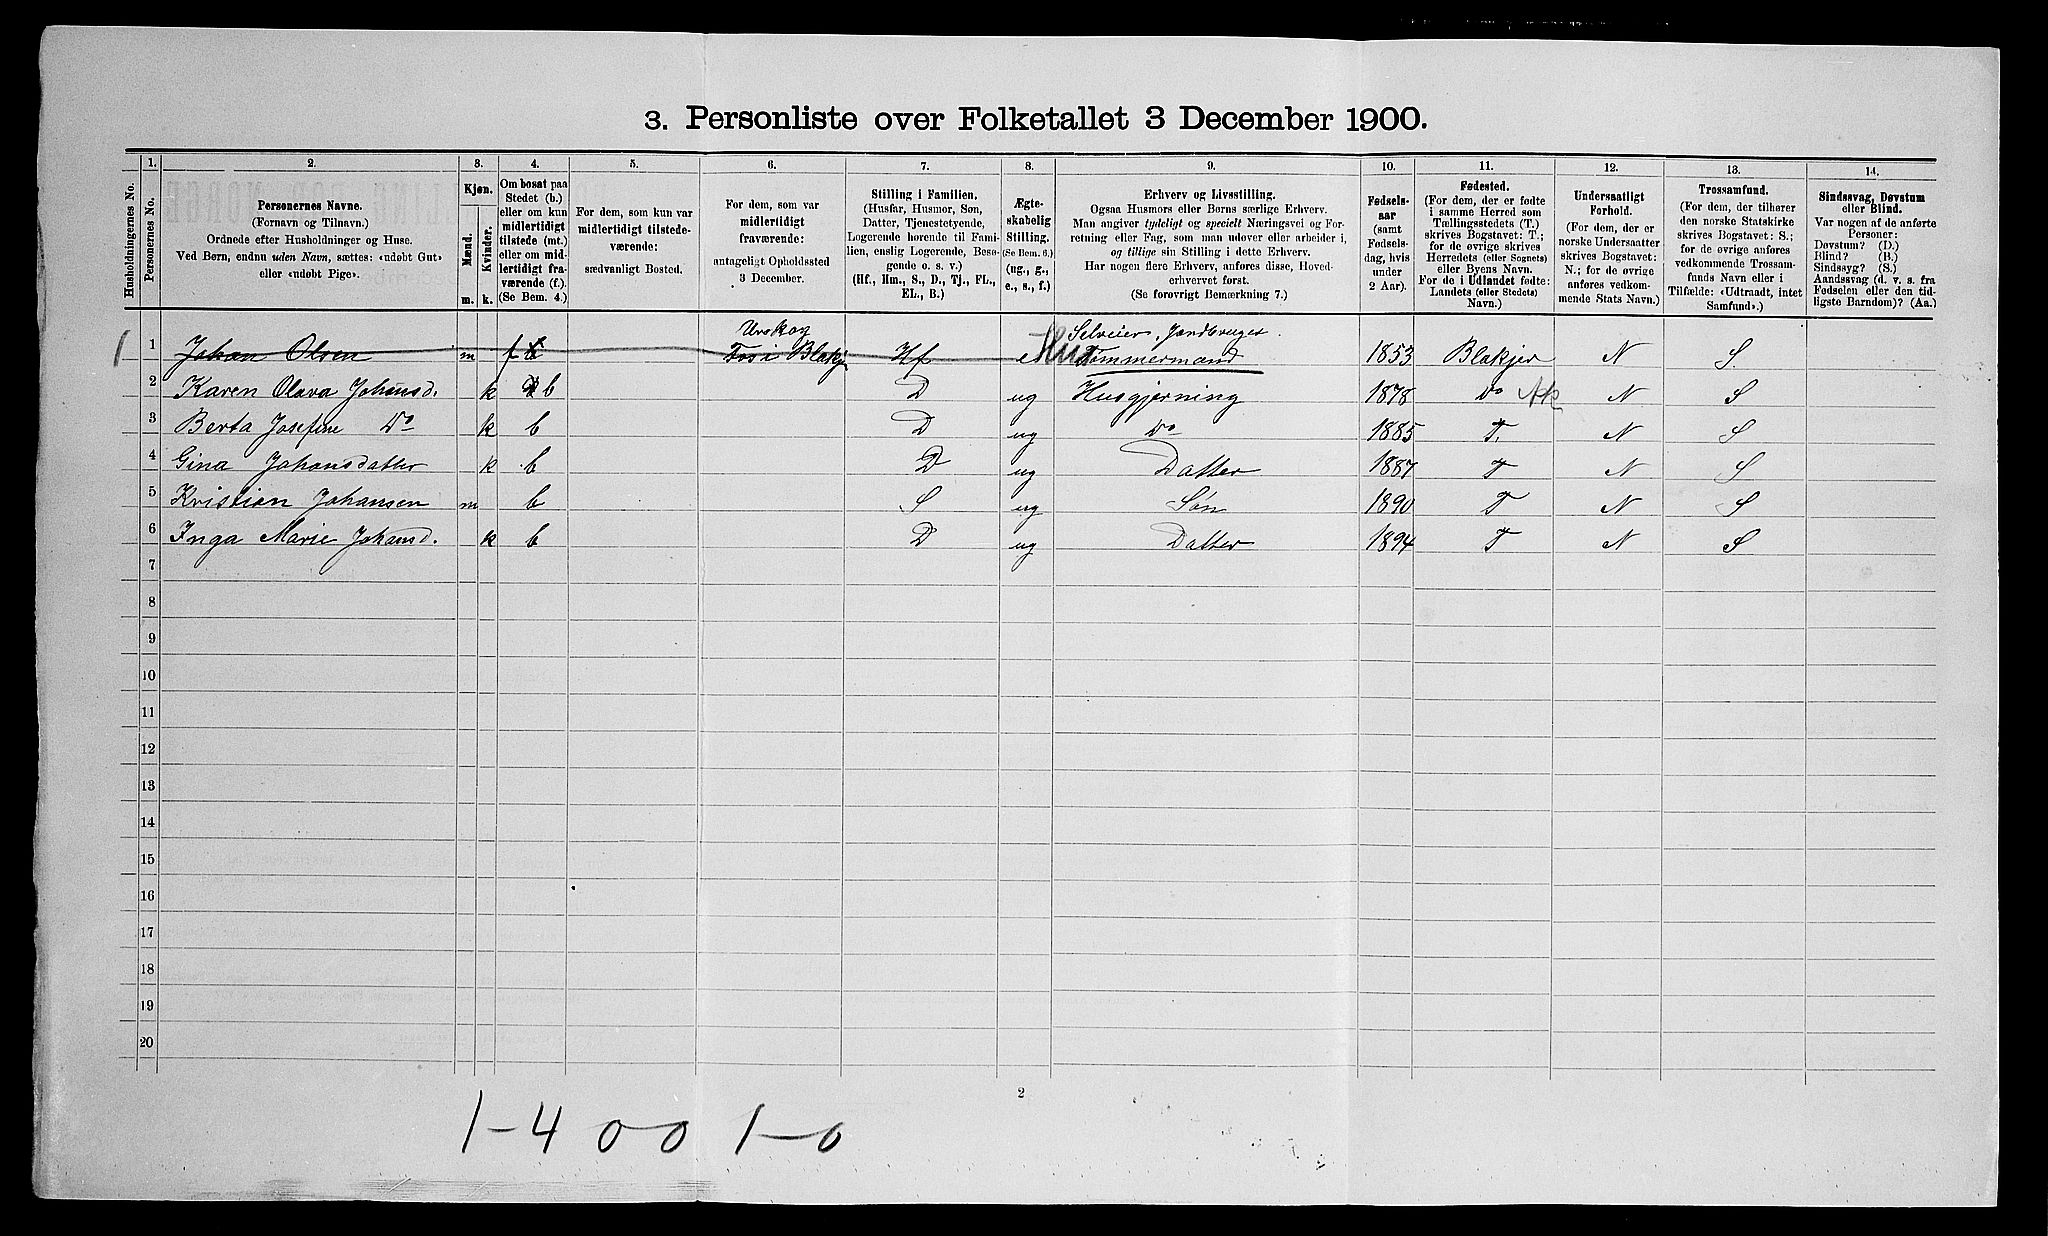 3. Personliste over Folketallet 3 December 1900.
Husholdningernes No.
1. Personernes No.
2. Personernes Navne. (Fornavn og Tilnavn.) Ordnede efter Husholdninger og Huse. Ved Børn, endnu uden Navn, sættes: «udøbt Gut» eller «udøbt Pige».
3. Kjøn. Mænd. m. Kvinder. k.
4. Om bosat paa Stedet (b.) eller om kun midlertidigt tilstede (mt.) eller om midlertidigt fraværende (f.). (Se Bem. 4.)
5. For dem, som kun var midlertidigt tilstedeværende: sædvanligt Bosted.
6. For dem, som var midlertidigt fraværende: antageligt Opholdssted 3 December.
7. Stilling i Familien. (Husfar, Husmor, Søn, Datter, Tjenestetyende, Logerende hørende til Familien, enslig Logerende, Besøgende o. s. v.) (Hf., Hm., S., D., Tj., FL., EL., B.)
8. Ægteskabelig Stilling. (Se Bem. 6.) (ug., g., e., s., f.)
9. Erhverv og Livsstilling. Ogsaa Husmors eller Børns særlige Erhverv. Man angiver tydeligt og specielt Næringsvei og Forretning eller Fag, som man udøver eller arbeider i, og tillige sin Stilling i dette Erhverv. Har nogen flere Erhverv, anføres disse, Hovederhvervet først. (Se forøvrigt Bemærkning 7.)
10. Fødselsaar (samt Fødselsdag, hvis under 2 Aar).
11. Fødested. (For dem, der er fødte i samme Herred som Tællingsstedets (T.) skrives Bogstavet: T.; for de øvrige skrives Herredets (eller Sognets) eller Byens Navn. For de i Udlandet fødte: Landets (eller Stedets) Navn.)
12. Undersaatligt Forhold. (For dem, der er norske Undersaatter skrives Bogstavet: N.; for de øvrige anføres vedkommende Stats Navn.)
13. Trossamfund. (For dem, der tilhører den norske Statskirke skrives Bogstavet: S.; for de øvrige anføres vedkommende Trossamfunds Navn eller i Tilfælde: «Udtraadt, intet Samfund».)
14. Sindssvag, Døvstum eller Blind. Var nogen af de anførte Personer: Døvstum? (D.) Blind? (B.) Sindssyg? (S.) Aandssvag (d. v. s. fra Fødselen eller den tidligste Barndom)? (Aa.)
Urskog Selveier, Jordbruger.
1 1 Johan Olsen m f Hf e Tømmermand 1853 Blakjer N S.
2 Karen Olava Johansd. k b D ug Husgjerning 1878 do Ak N S
3 Berta Josefine Do k b D ug do 1885 T. N S
4 Gina Johansdatter k b D ug Datter 1887 T N S
5 Kristian Johansen m b S ug Søn 1890 T N S
6 Inga Marie Johansd. k b D ug Datter 1894 T N S
7
8
9
10
11
12
13
14
15
16
17
18
19
20
2
1-4 0 0 1-0